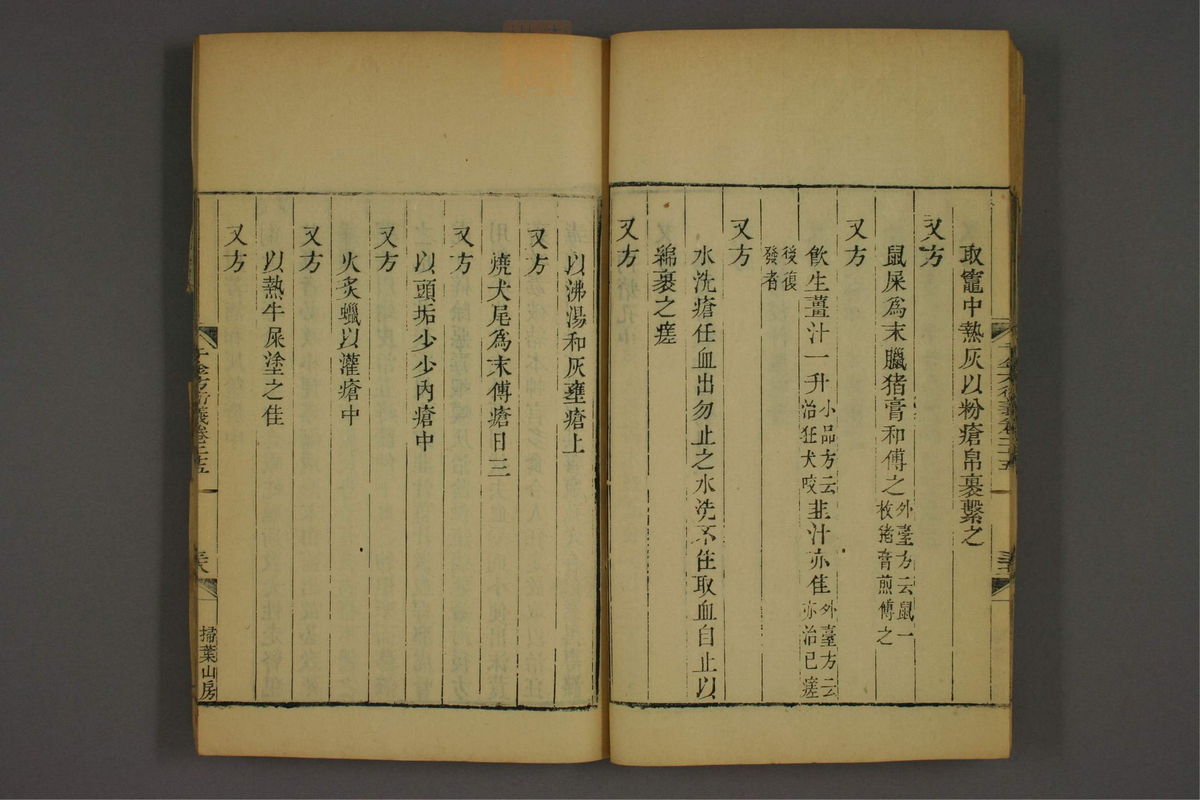 取竈中熱灰以粉瘡帛裹繫之
又方
鼠屎爲末臘猪膏和傅之外臺方云鼠一枚猪膏煎傅之
又方
飲生薑汁一升小品方云治狂犬咬韭汁亦佳外臺方云亦治已瘥
後復發者
又方
水洗瘡任血出勿止之水洗不住取血自止以
綿裹之瘥
又方
以沸湯和灰壅瘡上
又方
燒犬尾爲末傅瘡日三
又方
以頭垢少少內瘡中
又方
火炙蠟以灌瘡中
又方
以熱牛屎塗之佳
又方
千金方衍義卷二十五
掃葉山房